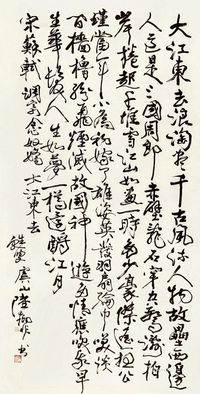 大江東去浪淘盡千古風流人物故壘西邊
人道是三國周郎赤壁亂石穿空驚濤拍
岸捲起千堆雪江山如畫一時多少豪傑遙想公
瑾當年小喬初嫁了雄姿英發羽扇綸巾談笑
間檣櫓灰飛煙滅故國神遊多情應笑我早
生華髮人生如夢一樽還酹江月
宋蘇軾調寄念奴嬌 大江東去
虞山 書